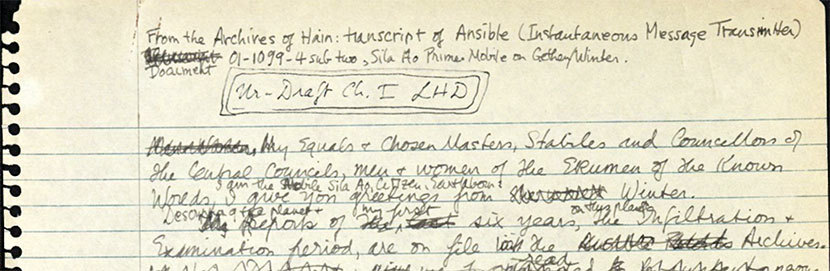 From the Archives of Hain: transcript of Ansible (Instantaneous Message Transmitter)
Document 01-1099-4 sub two, Sila Ao Prime Mobile on Gethen/Winter.
Ur-Draft Ch. I LHD
My Equals & Chosen Masters, Stabiles and Councillors of
the Central Councils, men & women of the Ekumen of the Known
I am the Mobile Sila Ao, citizen
Worlds, I give you greetings from Winter
Describing the planet & my first on this planet
Reports of six years, the Infiltration &
Examination period, are on file in the Archives.
read